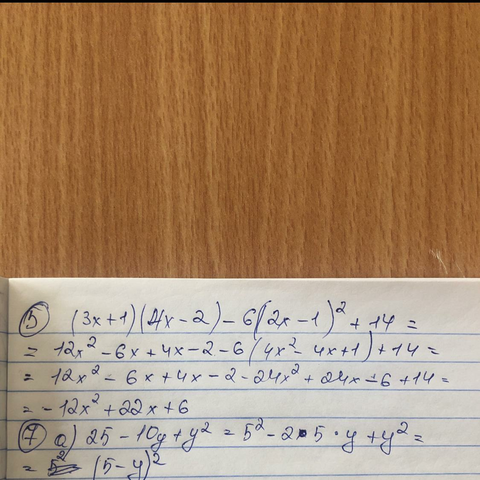 5 (3x+1)(4x-2)-6(2x-1)² + 14 =
= 12x² - 6x + 4x - 2 - 6(4x² - 4x + 1) + 14 =
= 12x² - 6x + 4x - 2 - 24x² + 24x - 6 + 14 =
= -12x² + 22x + 6
7 а) 25 - 10y + y² = 5² - 2 · 5 · y + y² =
= (5-y)²